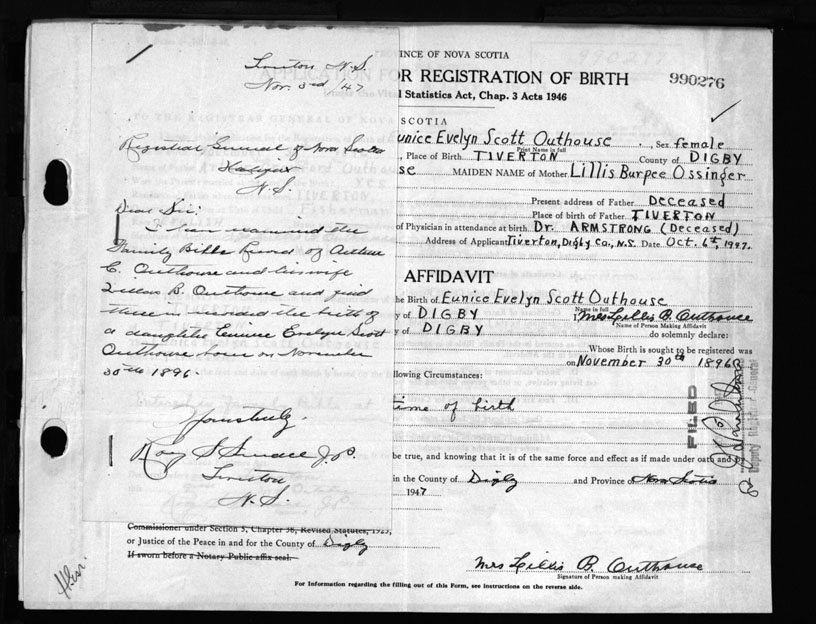 Tiverton N.S.
Nov. 3rd 47
Registrar General of Nova Scotia
Halifax
N.S.
Dear Sir:
I have examined the
Family Bible Record of Arthur
C. Outhouse and his wife
B. Outhouse and find
there in recorded the birth of
a daughter Eunice Evelyn Scott
Outhouse born on November
30th 1896.
Yours truly,
Roy S J.P.
Tiverton
N.S.
INCE OF NOVA SCOTIA
R REGISTRATION OF BIRTH
990276
l Statistics Act, Chap. 3 Acts 1946
SCOTIA
Eunice Evelyn Scott Outhouse, Sex female
Print Name in full
, Place of Birth TIVERTON County of DIGBY
se MAIDEN NAME of Mother Lillis Burpee Ossinger
Present address of Father Deceased
Place of birth of Father TIVERTON
of Physician in attendance at birth Dr. ARMSTRONG (Deceased)
Address of Applicant Tiverton, Digby Co., N.S. Date Oct. 6th, 1947.
AFFIDAVIT
he Birth of Eunice Evelyn Scott Outhouse
Name in full
y of DIGBY I, Mrs Lillis B. Outhouse
Name of Person Making Affidavit
y of DIGBY do solemnly declare:
Whose Birth is sought to be registered was
on November 30th 1896
llowing Circumstances:
time of birth
be true, and knowing that it is of the same force and effect as if made under oath and by
in the County of Digby and Province of Nova Scotia
1947
FILED
Deputy Registrar General
Commissioner under Section 5, Chapter 36, Revised Statutes, 1923,
or Justice of the Peace in and for the County of Digby
If sworn before a Notary Public affix seal.
Mrs Lillis B. Outhouse
Signature of Person making Affidavit
For Information regarding the filling out of this Form, see instructions on the reverse side.